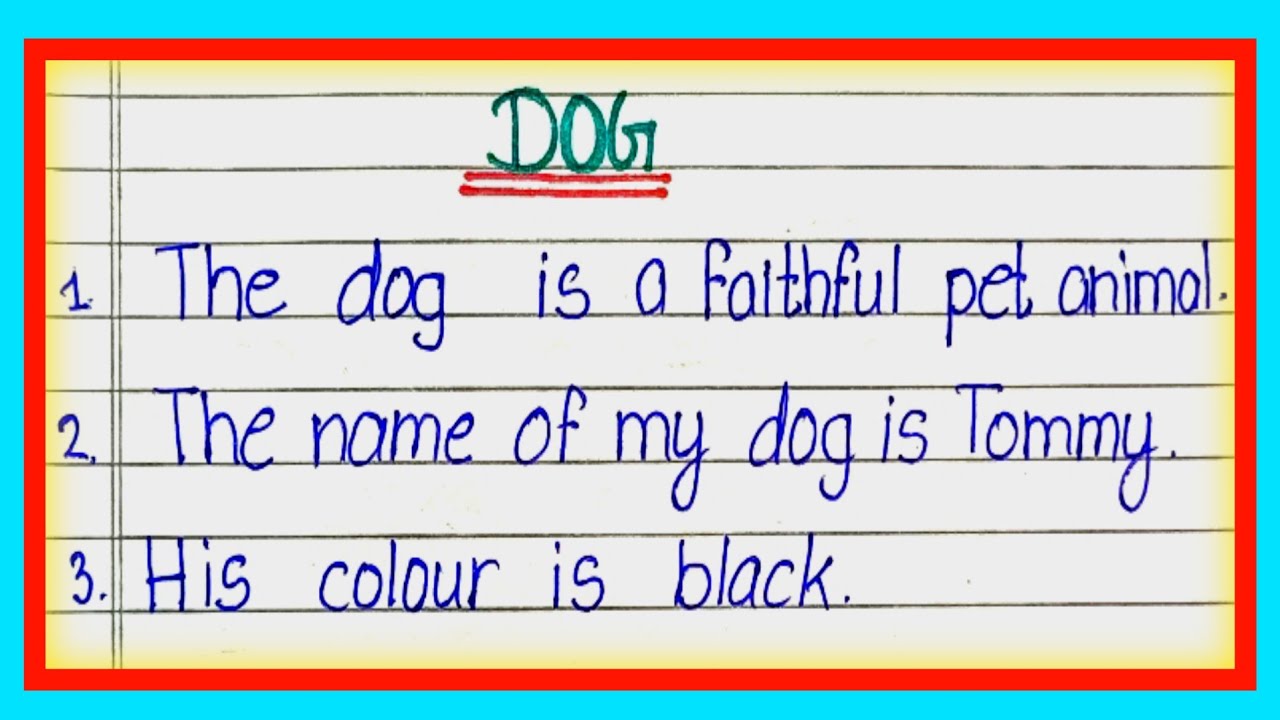 DOG
1. The dog is a faithful pet animal.
2. The name of my dog is Tommy.
3. His colour is black.